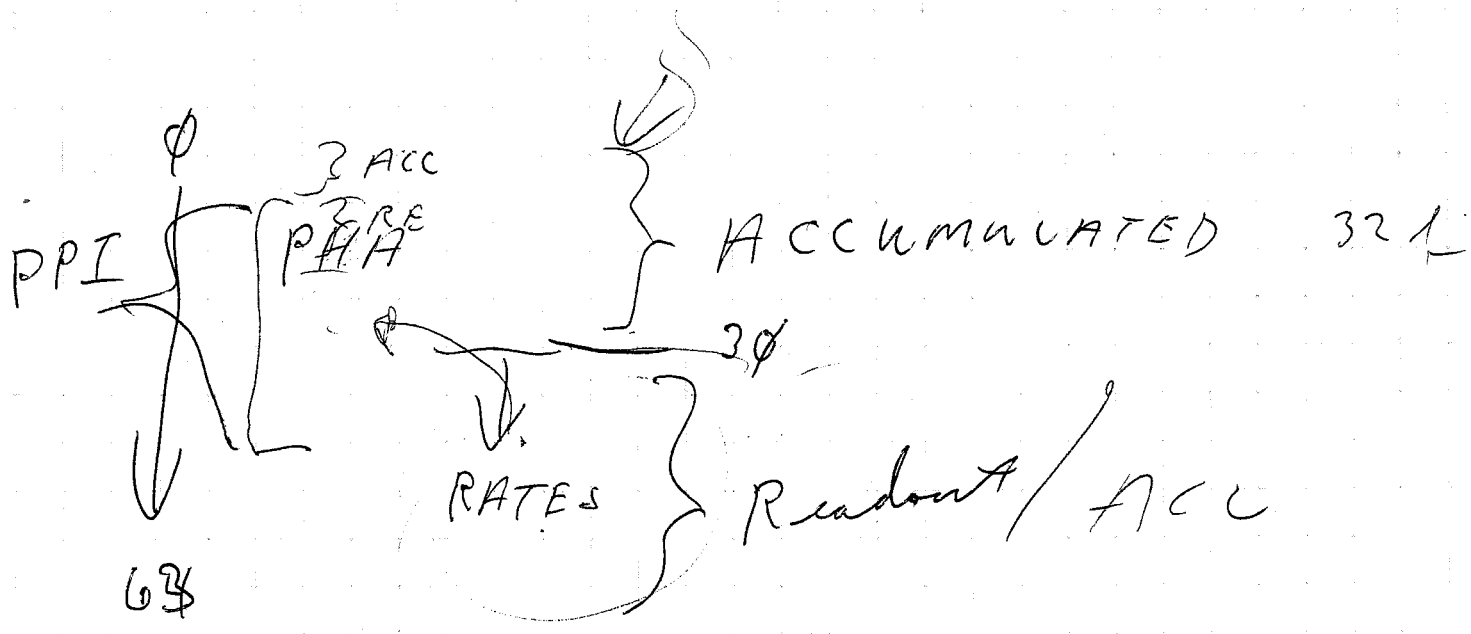 φ
} ACC
} RE
PPI
PHA
ACCUMULATED
3φ
RATES
Readout / ACC